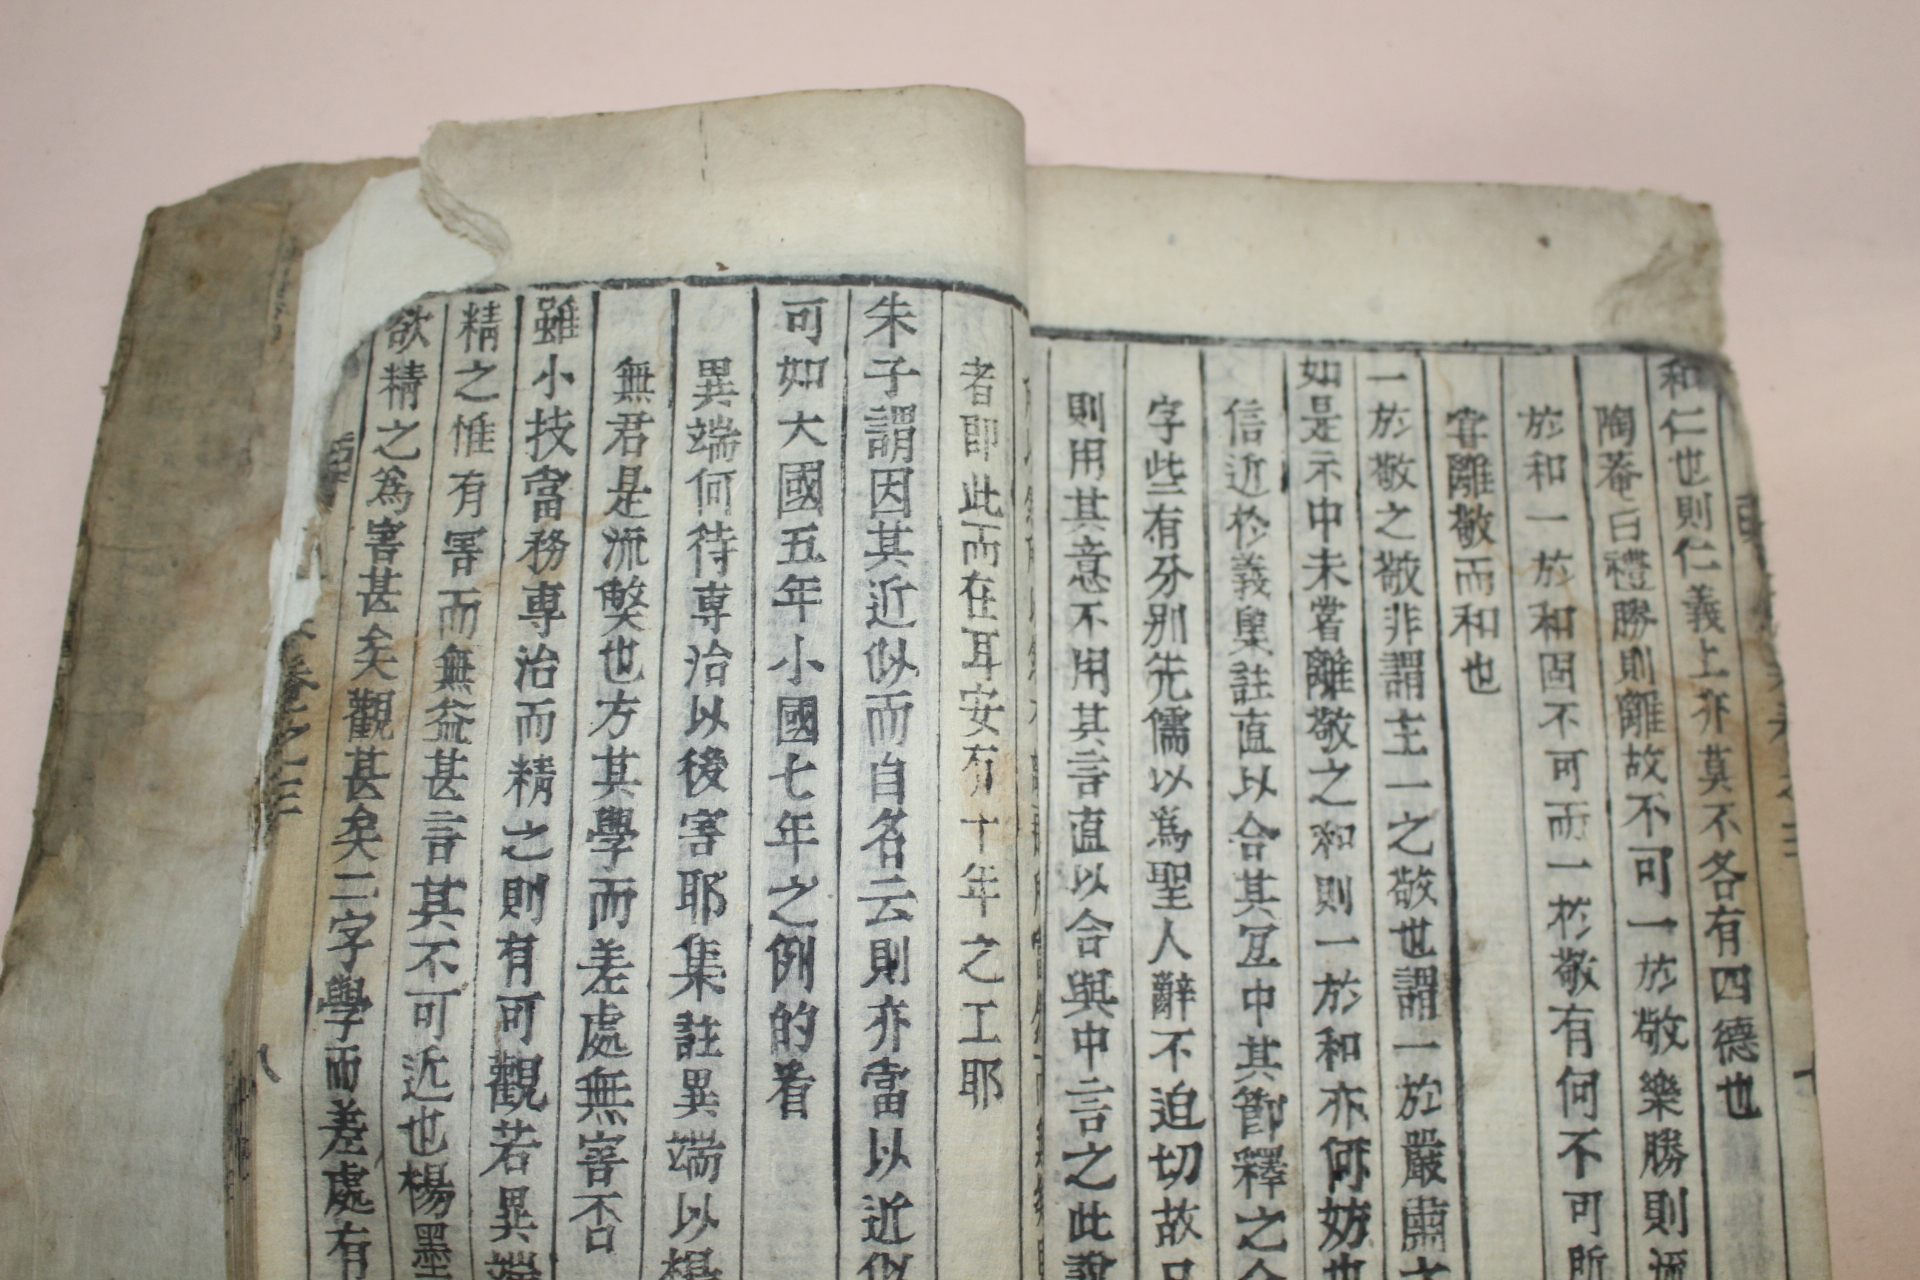 和仁也則仁義上亦莫不各有四德也
陶菴曰禮勝則離故不可一於敬樂勝則流
於和一於和固不可而一於敬有何不可所
離敬而和也
一於敬之敬非謂主一之敬也謂一於嚴肅之
如是示中未嘗離敬之和則一於和亦何妨也
信近於義集註直以合其宜中其節釋之合
字些有分别先儒以爲聖人辭不迫切故只
則用其意不用其言直以合與中言之此說
者即此而在耳安有十年之工耶
朱子謂因其近似而自名云則亦當以近似
可如大國五年小國七年之例的看
異端何待專治以後害耶集註異端以楊
無君是流弊也方其學而差處無害否
雖小技當務專治而精之則有可觀若異端
精之惟有害而無益甚言其不可近也楊墨
欲精之爲害甚矣觀甚矣二字學而差處有
卷之三
八